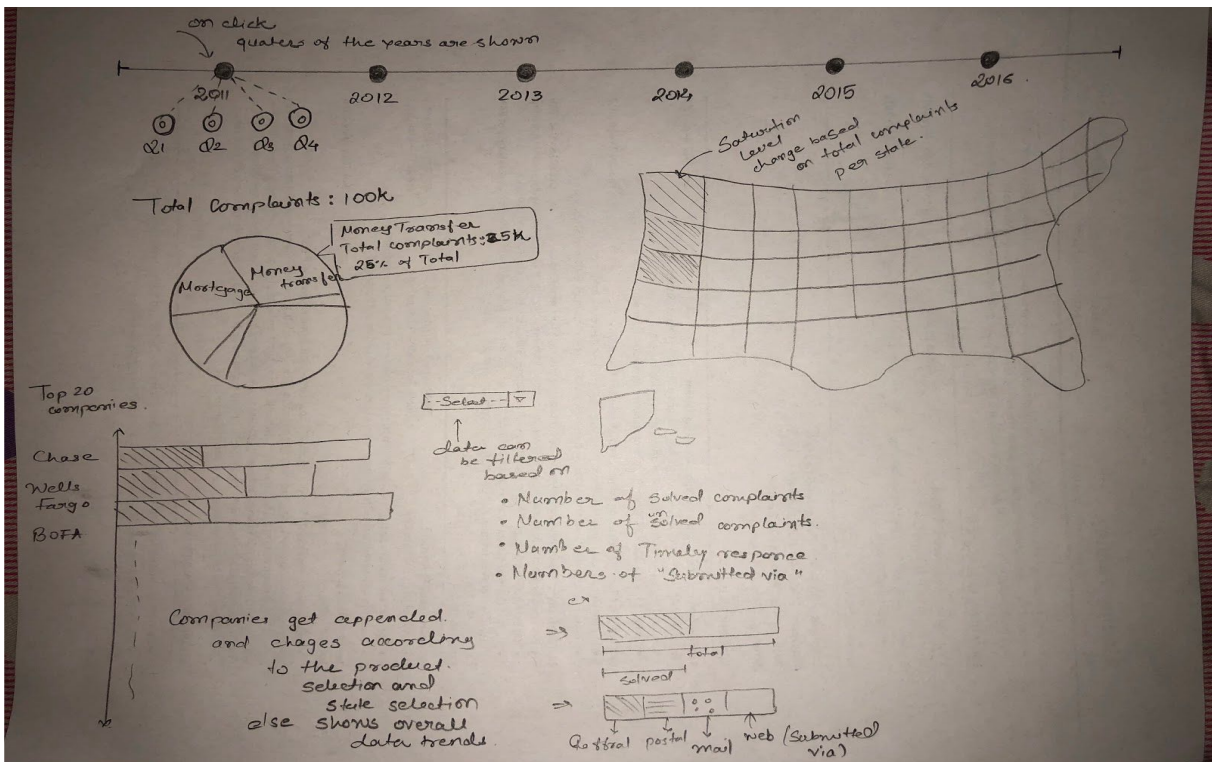 on click
quaters of the years are shown
2011
2012
2013
2014
2015
2016
Q1 Q2 Q3 Q4
Saturation
level
change based
on total complaints
per state.
Total Complaints : 100K
Money Transfer
Total complaints: 25K
25% of Total
Mortgage
Money
transfer
Top 20
companies.
Chase
Wells
Fargo
BOFA
--Select--
data can
be filtered
based on
• Number of Solved complaints
• Number of unsolved complaints.
• Number of Timely responce
• Numbers of "Submitted via"
Companies get appended.
and chages according
to the product.
selection and
state selection
else shows overall
data trends.
ex
total
solved
postal
mail
web (Submitted
via)